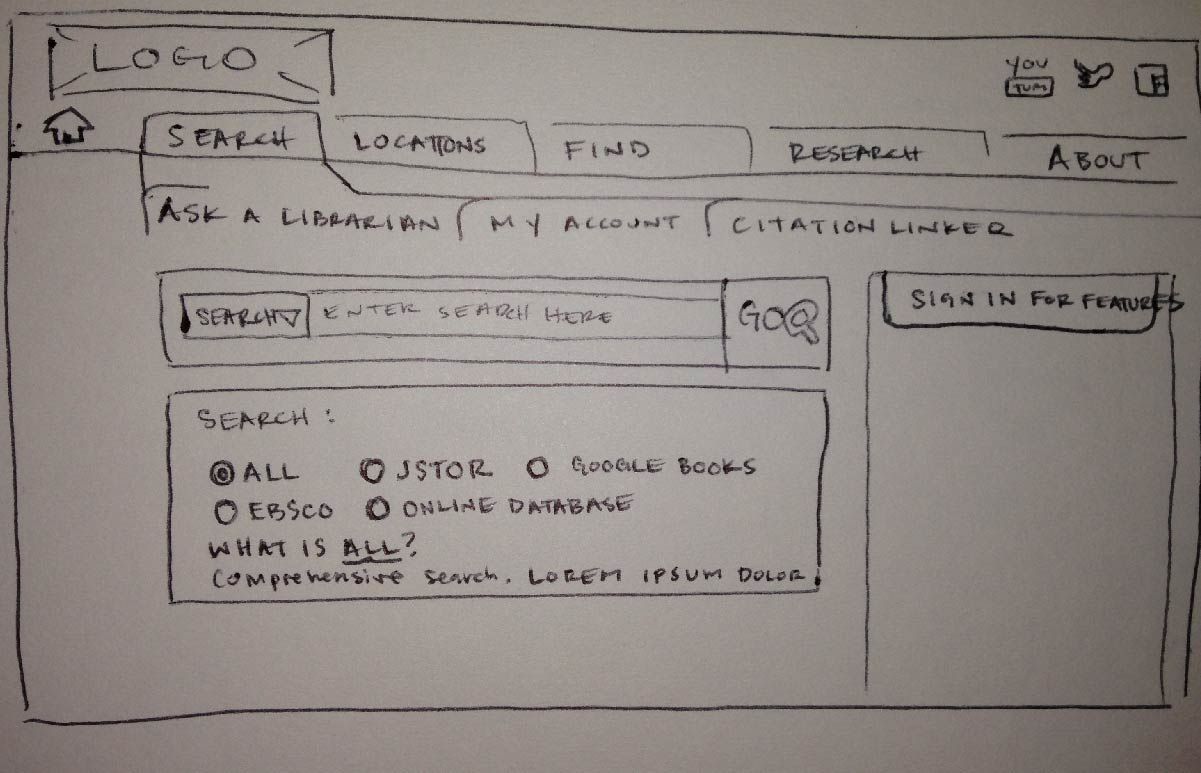 LOGO
YOU
TUM
SEARCH
LOCATIONS
FIND
RESEARCH
ABOUT
ASK A LIBRARIAN
MY ACCOUNT
CITATION LINKER
SEARCH
ENTER SEARCH HERE
GO
SIGN IN FOR FEATURES
SEARCH :
ALL
JSTOR
GOOGLE BOOKS
EBSCO
ONLINE DATABASE
WHAT IS ALL?
Comprehensive search. LOREM IPSUM DOLOR.